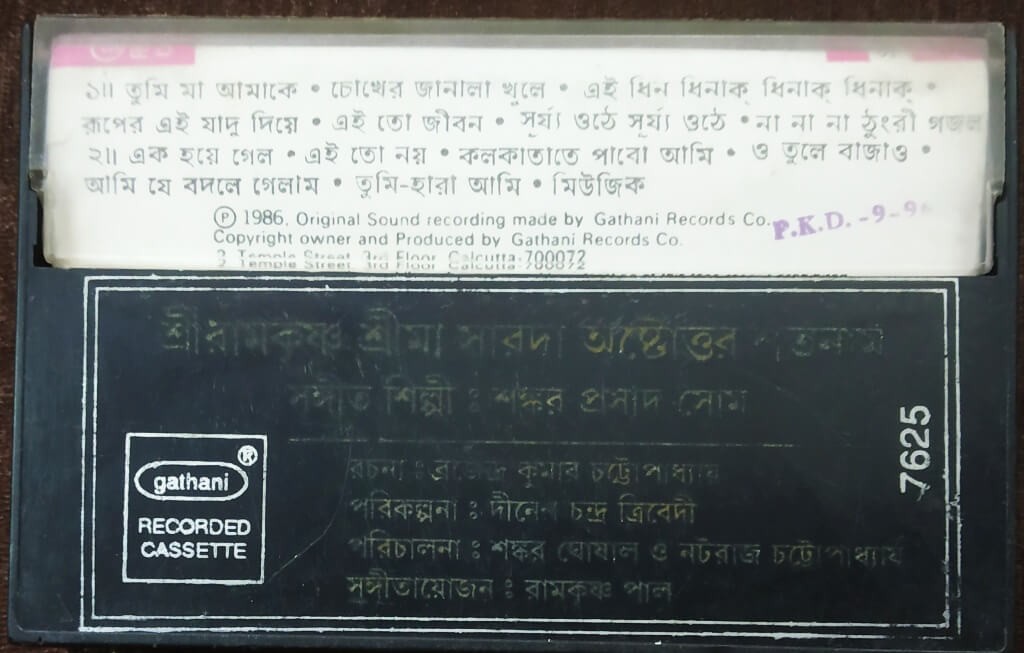 ১॥ তুমি মা আমাকে • চোখের জানালা খুলে • এই ধিন ধিনাক্ ধিনাক্ ধিনাক্ •
রূপের এই যাদু দিয়ে • এই তো জীবন • সূর্য্য ওঠে সূর্য্য ওঠে • না না না ঠুংরী গজল
২॥ এক হয়ে গেল • এই তো নয় • কলকাতাতে পাবো আমি • ও তুলে বাজাও •
আমি যে বদলে গেলাম • তুমি-হারা আমি • মিউজিক
Ⓟ 1986. Original Sound recording made by Gathani Records Co.
P.K.D. -9-9
Copyright owner and Produced by Gathani Records Co.
2 Temple Street 3rd Floor Calcutta-700072
শ্রীরামকৃষ্ণ শ্রীমা সারদা অষ্টোত্তর শতনাম
সঙ্গীত শিল্পী : শঙ্কর প্রসাদ সোম
রচনা : ব্রজেন্দ্র কুমার চট্টোপাধ্যায়
পরিকল্পনা : দীনেশ চন্দ্র ত্রিবেদী
পরিচালনা : শঙ্কর ঘোষাল ও নটরাজ চট্টোপাধ্যায়
সঙ্গীতায়োজন : রামকৃষ্ণ পাল
gathani ®
RECORDED
CASSETTE
7625